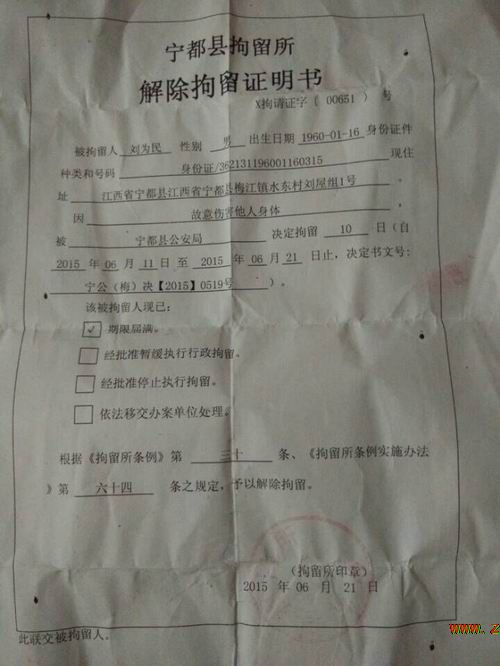 宁都县拘留所
解除拘留证明书
X拘请证字〔 00651 〕 号
被拘留人 刘为民 性别 男 出生日期 1960-01-16 身份证件
种类和号码 身份证/362131196001160315 现住
址 江西省宁都县江西省宁都县梅江镇水东村刘屋组1号
因 故意伤害他人身体
被 宁都县公安局 决定拘留 10 日（自
2015 年 06 月 11 日 至 2015 年 06 月 21 日止，决定书文号：
宁公（梅）决【2015】0519号 ）。
该被拘留人现已：
☑ 期限届满。
□ 经批准暂缓执行行政拘留。
□ 经批准停止执行拘留。
□ 依法移交办案单位处理。
根据《拘留所条例》第 三十 条、《拘留所条例实施办法
》第 六十四 条之规定，予以解除拘留。
（拘留所印章）
2015 年 06 月 21 日
此联交被拘留人。
www.z